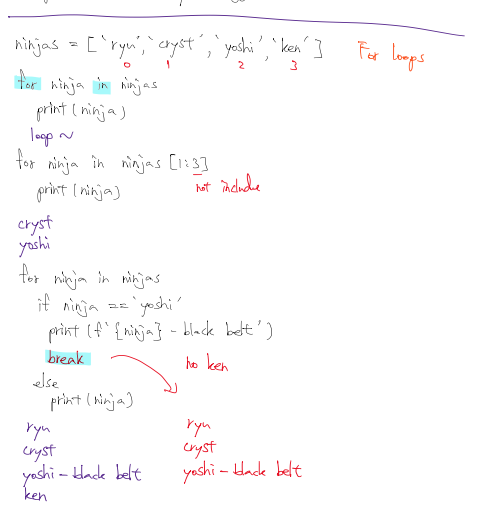 ninjas = ['ryu', 'cryst', 'yoshi', 'ken'] For loops
0 1 2 3
for ninja in ninjas
print (ninja)
loop ~
for ninja in ninjas [1:3]
print (ninja) not include
cryst
yoshi
for ninja in ninjas
if ninja == 'yoshi'
print (f'{ninja} - black belt')
break no ken
else
print (ninja)
ryu ryu
cryst cryst
yoshi - black belt yoshi - black belt
ken